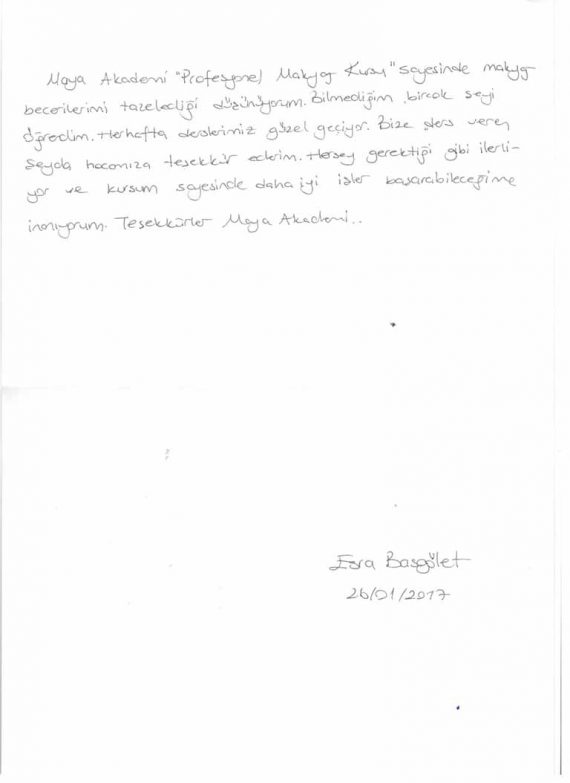 Maya Akademi "Profesyonel Makyaj Kursu" sayesinde makyaj
becerilerimi tazelediği düşünüyorum. Bilmediğim bircok seyi
Öğredim. Herhafta derslerimiz güzel geçiyor. Bize ders veren
Seyda hocamıza teşekkür ederim. Hersey gerektiği gibi ilerli-
yor ve kursum sayesinde daha iyi işler basarabileceğime
inanıyorum. Teşekkürler Maya Akademi..
Esra Basgület
26/01/2017